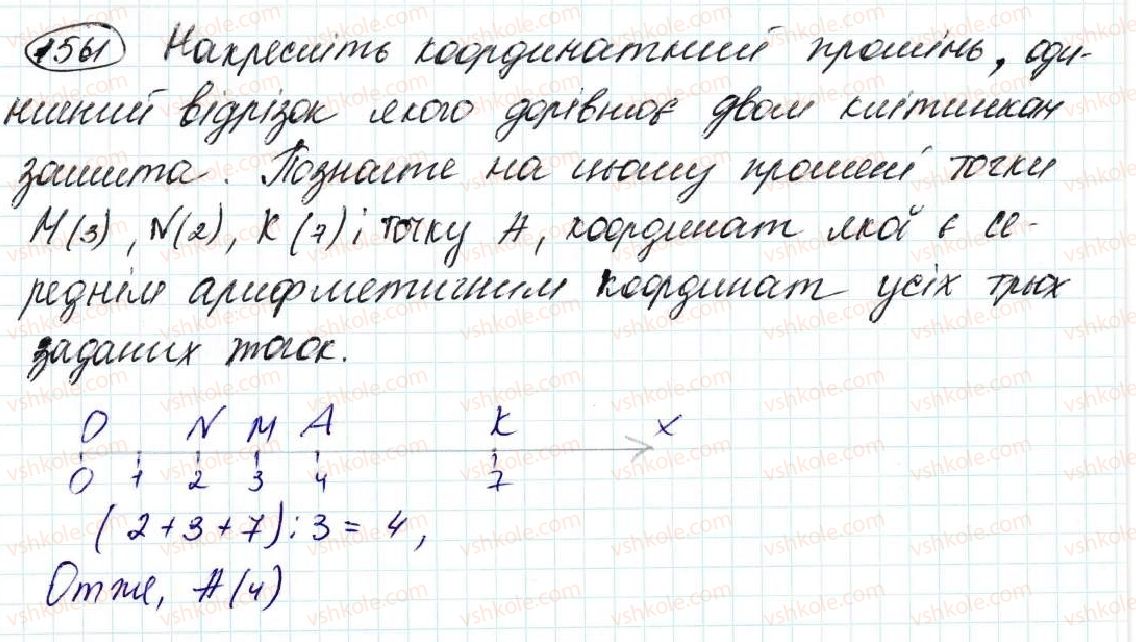 1561 Накресліть координатний промінь, оди-
ничний відрізок якого дорівнює двом клітинкам
зошита. Позначте на цьому промені точки
M(3), N(2), K(7) і точку A, координат якої є се-
реднім арифметичним координат усіх трьох
заданих точок.
O N M A K x
0 1 2 3 4 7
(2+3+7):3 = 4,
Отже, A(4)